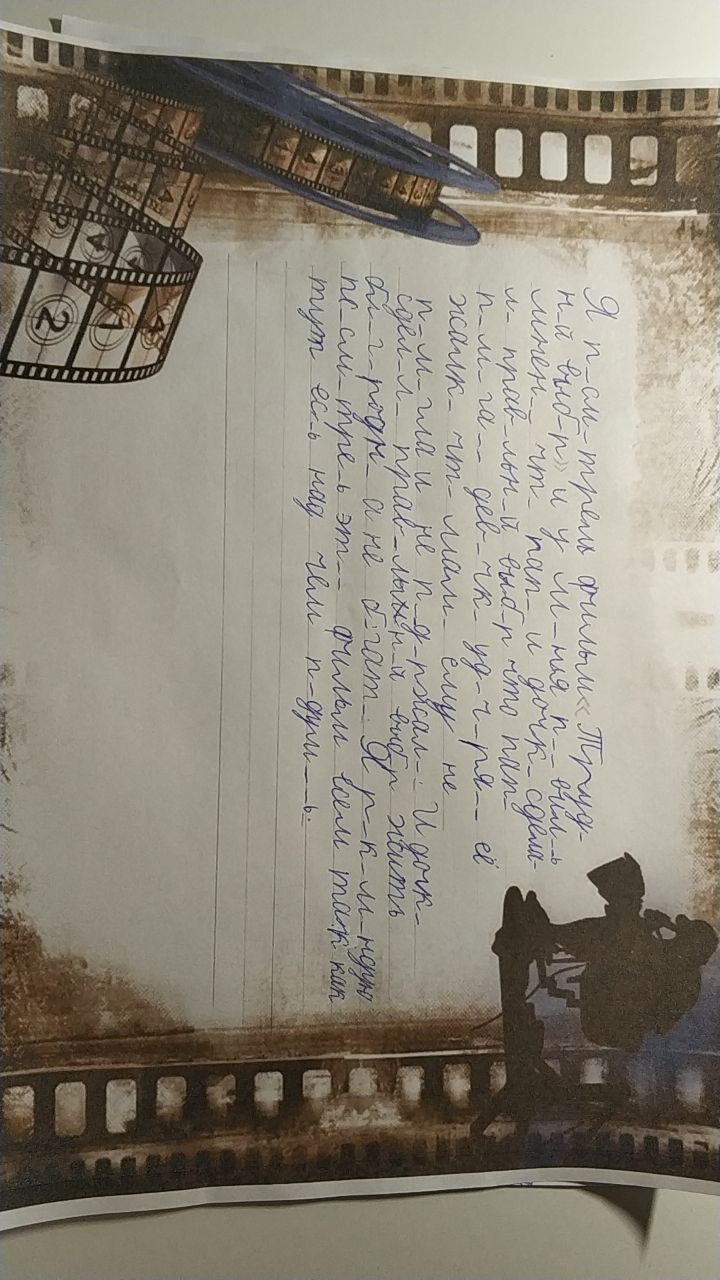 Я п-см-трель фильм «Труд-
н-й выб-р» и у м-нья п--вил-ь
мнен-- чт- пап- и дочк- сдела-
л- прав-льн-й выб-р что пап-
п-м-га-- дев-чк- уд-ч-ря-- её
жалк- чт- мам- ему не
п-м-гла и не п-д-ржал-. И дочк-
сдел-л- прав-льын-й выб-р жить
бл-г-родн- а не б-гат-. Я р-к-м-ндую
п-см-тре-ь эт-- фильм всем так как
тут ес-ь над чем п-дум--ь.
2
1
4